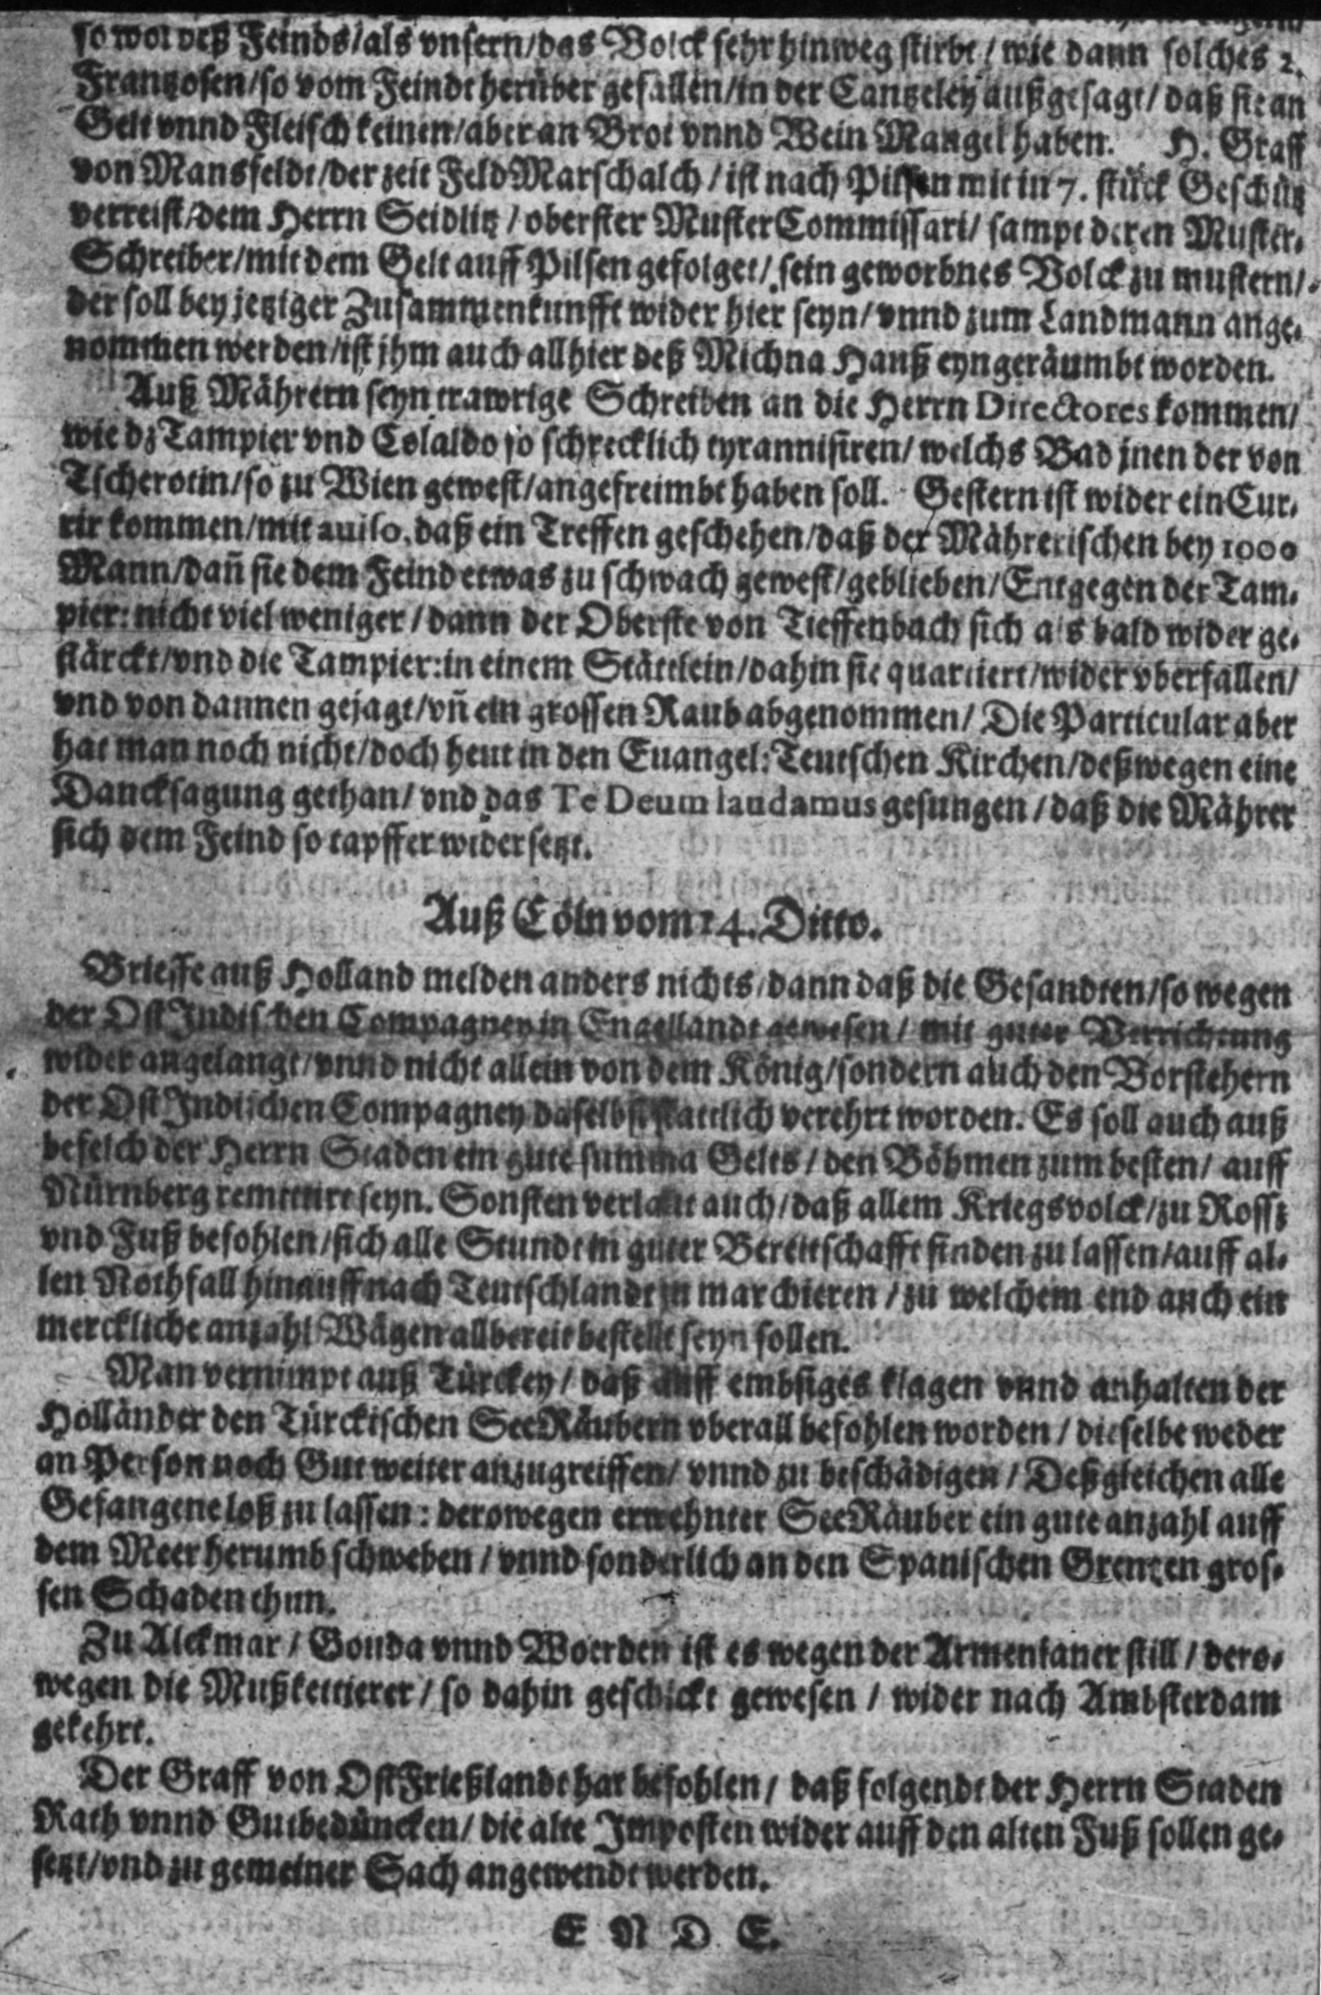 so wol deß Feinds/als vnsern/das Volck sehr hinweg stirbt/wie dann solches 2.
Frantzosen/so vom Feindt herüber gefallen/in der Cantzeley außgesagt/daß sie an
Gelt vnnd Fleisch keinen/aber an Brot vnnd Wein Mangel haben. H. Graff
von Mansfeldt/der zeit FeldMarschalch/ist nach Pilsen mit in 7. stück Geschütz
verreist/dem Herrn Seidlitz/oberster MusterCommissari/sampt deren Muster-
Schreiber/mit dem Gelt auff Pilsen gefolget/sein geworbnes Volck zu mustern/
der soll bey jetziger Zusammenkunfft wider hier seyn/vnnd zum Landmann ange-
nommen werden/ist jhm auch allhier deß Michna Hauß eyngeräumbt worden.
Auß Mährern seyn trawrige Schreiben an die Herrn Directores kommen/
wie dz Tampier vnd Colaldo so schrecklich tyrannisiren/welchs Bad jnen der von
Tscherotin/so zu Wien gewest/angefreimbt haben soll. Gestern ist wider ein Cur-
rir kommen/mit auiso, daß ein Treffen geschehen/daß der Mährerischen bey 1000
Mann/dañ sie dem Feind etwas zu schwach gewest/geblieben/Entgegen der Tam-
pier: nicht viel weniger/dann der Oberste von Tieffenbach sich als bald wider ge-
stärckt/vnd die Tampier: in einem Stättlein/dahin sie quartiert/wider vberfallen/
vnd von dannen gejagt/vñ ein grossen Raub abgenommen/Die Particular aber
hat man noch nicht/doch heut in den Euangel: Teutschen Kirchen/deßwegen eine
Dancksagung gethan/vnd das Te Deum laudamus gesungen/daß die Mährer
sich dem Feind so tapffer widersetzt.
Auß Cöln vom 14. Ditto.
Brieffe auß Holland melden anders nichts/dann daß die Gesandten/so wegen
der OstIndischen Compagney in Engellandt gewesen/mit guter Verrichtung
wider angelangt/vnnd nicht allein von dem König/sondern auch den Vorstehern
der OstIndischen Compagney daselbst stattlich verehrt worden. Es soll auch auß
befelch der Herrn Staden ein gute summa Gelts/den Böhmen zum besten/auff
Nürnberg remittirt seyn. Sonsten verlaut auch/daß allem Kriegsvolck/zu Rossz
vnd Fuß befohlen/sich alle Stundt in guter Bereitschafft finden zu lassen/auff al-
len Nothfall hinauff nach Teutschlandt zu marchieren/zu welchem end auch ein
merckliche anzahl Wägen allbereit bestellt seyn sollen.
Man vernimpt auß Türckey/daß auff embsiges klagen vnnd anhalten der
Holländer den Türckischen SeeRäubern vberall befohlen worden/dieselbe weder
an Person noch Gut weiter anzugreiffen/vnnd zu beschädigen/Deßgleichen alle
Gefangene loß zu lassen: derowegen erwehnter SeeRäuber ein gute anzahl auff
dem Meer herumb schweben/vnnd sonderlich an den Spanischen Grentzen gros-
sen Schaden thun.
Zu Alckmar/Gouda vnnd Woerden ist es wegen der Armenianer still/dero-
wegen die Mußkettierer/so dahin geschickt gewesen/wider nach Ambsterdam
gekehrt.
Der Graff von OstFrießlandt hat befohlen/daß folgendt der Herrn Staden
Rath vnnd Gutbedüncken/die alte Imposten wider auff den alten Fuß sollen ge-
setzt/vnd zu gemeiner Sach angewendt werden.
E N D E.